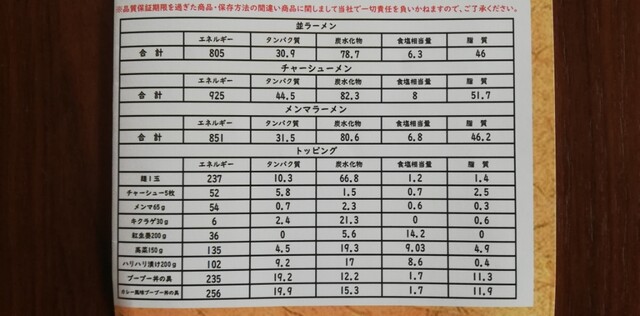 ※品質保証期限を過ぎた商品・保存方法の間違い商品に関しまして当社で一切責任を負いかねますので、ご了承ください。
並ラーメン
エネルギー タンパク質 炭水化物 食塩相当量 脂質
合計 805 30.9 78.7 6.3 46
チャーシューメン
エネルギー タンパク質 炭水化物 食塩相当量 脂質
合計 925 44.5 82.3 8 51.7
メンマラーメン
エネルギー タンパク質 炭水化物 食塩相当量 脂質
合計 851 31.5 80.6 6.8 46.2
トッピング
エネルギー タンパク質 炭水化物 食塩相当量 脂質
麺1玉 237 10.3 66.8 1.2 1.4
チャーシュー5枚 52 5.8 1.5 0.7 2.5
メンマ65g 54 0.7 2.3 0.6 0.3
キクラゲ30g 6 2.4 21.3 0 0.6
紅生姜200g 36 0 5.6 14.2 0
高菜150g 135 4.5 19.3 9.03 4.9
ハリハリ漬け200g 102 9.2 17 8.6 0.4
ブーブー丼の具 235 19.2 12.2 1.7 11.3
カレー風味ブーブー丼の具 256 19.9 15.3 1.7 11.9